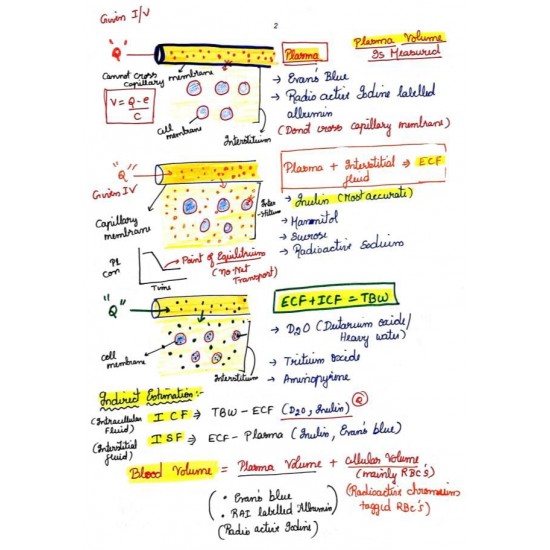 Given I/V
2
"Q"
Plasma
Plasma Volume
Is Measured
Cannot cross
capillary membrane
V = Q - e
C
Cell
membrane
Interstitium
→ Evan's Blue
→ Radio active Iodine labelled
albumin
(Donot cross capillary membrane)
"Q"
Given IV
Plasma + Interstitial ⇒ ECF
fluid
Capillary
membrane
Inter
-stitium
→ Inulin (Most accurate)
→ Mannitol
→ Sucrose
→ Radioactive Sodium
Pl
Con
Time
Point of Equilibrium
(No Net
Transport)
"Q"
ECF + ICF = TBW
Cell
membrane
Interstitium
→ D2O (Deutarium oxide/
Heavy water)
→ Tritium oxide
→ Aminopyrene
Indirect Estimation:-
(Intracellular
Fluid)
ICF ⇒ TBW - ECF (D2O, Inulin) Q
(Interstitial
fluid)
ISF ⇒ ECF - Plasma (Inulin, Evan's blue)
Blood Volume = Plasma Volume + Cellular Volume
(mainly RBC's)
( • Evan's blue
• RAI labelled Albumin )
(Radio active Iodine)
(Radioactive chromium
tagged RBC's)